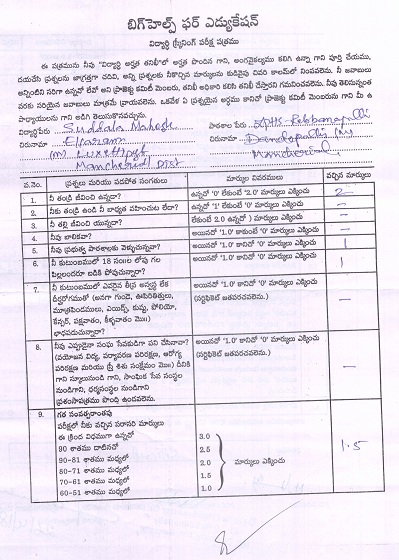 బిగ్‌హెల్ప్ ఫర్ ఎడ్యుకేషన్
విద్యార్థి స్క్రీనింగ్ పరీక్ష పత్రము
ఈ పత్రమును నీవు "విద్యార్థి అర్హత తనిఖీ"లో అర్హత పొందిన గాని, అంగవైకల్యము కలిగి ఉన్నా గాని పూర్తి చేయుము,
దయచేసి ప్రశ్నలను జాగ్రత్తగా చదివి, అన్ని ప్రశ్నలకు నీకొచ్చిన మార్కులను కుడివైపు చివరి కాలమ్‌లో నింపవలెను. నీ జవాబులు
అన్నింటిని సరిగా ఉన్నదో లేదో అని ప్రాజెక్టు కమిటీ మెంబరు, తనిఖీ అధికారి కలిసి తనిఖీ చేస్తారని గమనించవలెను. నీవు తెలిసినంత
వరకు సరియైన జవాబులు మాత్రమే వ్రాయవలెను. ఒకవేళ ఏ ప్రశ్నయైన అర్థము కానిచో ప్రాజెక్టు కమిటీ మెంబరును గాని మీ ఉ
పాధ్యాయులను గాని అడిగి తెలుసుకోవచ్చును.
విద్యార్థిపేరు Suddala Mahesh పాఠశాల పేరు ZPHS Pebbanapalli
చిరునామా Elkaram చిరునామా Dandepalli (M)
(M) Luxettipet Mancherial
Mancherial DIST
వ.నెం. ప్రశ్నలు మరియు పదపోత సంగతులు మార్కుల వివరములు వచ్చిన మార్కులు
1. నీ తండ్రి జీవించి ఉన్నాడా? ఉన్నచో '0' లేకుంటే '2.0' మార్కులు ఎక్కించు 2
2. నీకు తండ్రి ఉండి నీ బాధ్యత వహించుట లేదా? ఉన్నచో '1' లేకుంటే '0' మార్కులు ఎక్కించు —
3. నీ తల్లి జీవించి యున్నదా? లేకుంటే 2.0 ఉన్నచో ) మార్కులు ఎక్కించు —
4. నీవు బాలికవా? అయినచో '1.0' కాకుంటే '0' మార్కులు ఎక్కించు —
5. నీవు ప్రభుత్వ పాఠశాలకు వెళ్ళుచున్నావా? అయినచో '1.0' కానిచో '0' మార్కులు ఎక్కించు 1
6. నీ కుటుంబములో 18 సం॥ల లోపు గల అయినచో '1.0' కానిచో '0' మార్కులు ఎక్కించు 1
పిల్లలందరూ బడికి పోవుచున్నారా?
7. నీ కుటుంబములో ఎవరైన తీవ్ర అస్వస్థ లేక అయినచో '1.0' కానిచో '0' మార్కులు ఎక్కించు —
దీర్ఘరోగముతో (అనగా గుండె, ఊపిరితిత్తులు, (సర్టిఫికెట్ జతపరచవలెను.)
మూత్రపిండములు, ఎయిడ్స్, కుష్ఠు, పోలియో,
కేన్సర్, పక్షవాతం, కీళ్ళవాతం మొ॥)
బాధపడుచున్నారా?
8. నీవు ఎప్పుడైనా సంఘ సేవకుడిగా పని చేసినావా? అయినచో '1.0' కానిచో '0' మార్కులు ఎక్కించు —
(వయోజన విద్య, పర్యావరణ పరిరక్షణ, ఆరోగ్య (సర్టిఫికెట్ జతపరచవలెను.)
పరిరక్షణ మరియు స్త్రీ శిశు సంక్షేమం మొ॥) దీనికి
గాని స్కూలునుండి గాని, సాంఘిక సేవ సంస్థల
నుండిగాని, ధర్మసంస్థల నుండిగాని
ప్రశంసాపత్రము పొంది ఉండవలెను.
9. గత సంవత్సరాంతపు
పరీక్షలో నీకు వచ్చిన సరాసరి మార్కులు
ఈ క్రింది విధముగా ఉన్నచో 3.0
90 శాతము దాటినచో 2.5
90-81 శాతము మధ్యలో 2.0 మార్కులు ఎక్కించు 1.5
80-71 శాతము మధ్యలో 1.5
70-61 శాతము మధ్యలో 1.0
60-51 శాతము మధ్యలో